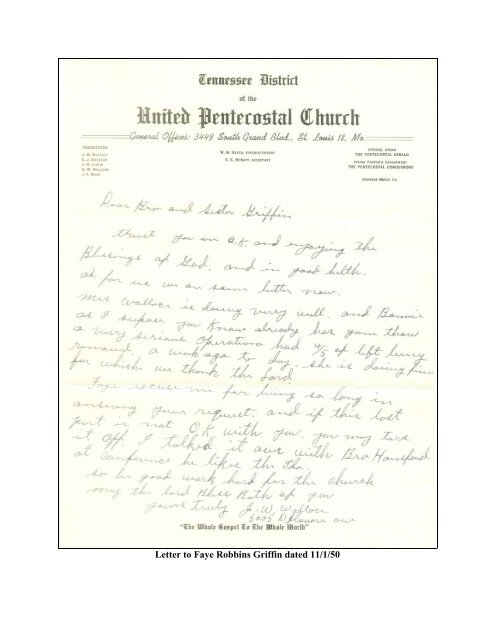 Tennessee District
of the
United Pentecostal Church
General Offices: 3449 South Grand Blvd., St. Louis 18, Mo.
PRESBYTERS
J. W. Wallace
J. H. Austin
E. W. Williams
W. M. Greer, Superintendent
E. E. McNatt, Secretary
OFFICIAL ORGAN
THE PENTECOSTAL HERALD
YOUNG PEOPLE'S DEPARTMENT
THE PENTECOSTAL CONQUERORS
Address Reply To:
Dear Bro and Sister Griffin
trust you are O.K. and enjoying the
Blessings of God. and in good helth.
as for us we are some better now.
Mrs Wallace is doing verry well. and
as I supose you Know already has gone thow
a verry serious Operations had 4/5 of left lung
removed, a week ago to day, she is doing fine
for which we thank the Lord.
Faye excuse me for being so long in
ansering your request. and if this last
part is not O.K with you. you may take
it off. I talked it over with Bro
at conference he likes the
so be good work hard for the church
may the Lord Bless Both of you
yours truly J. W. Wallace
5005 Delaware ave
"The Whole Gospel To The Whole World"
Letter to Faye Robbins Griffin dated 11/1/50